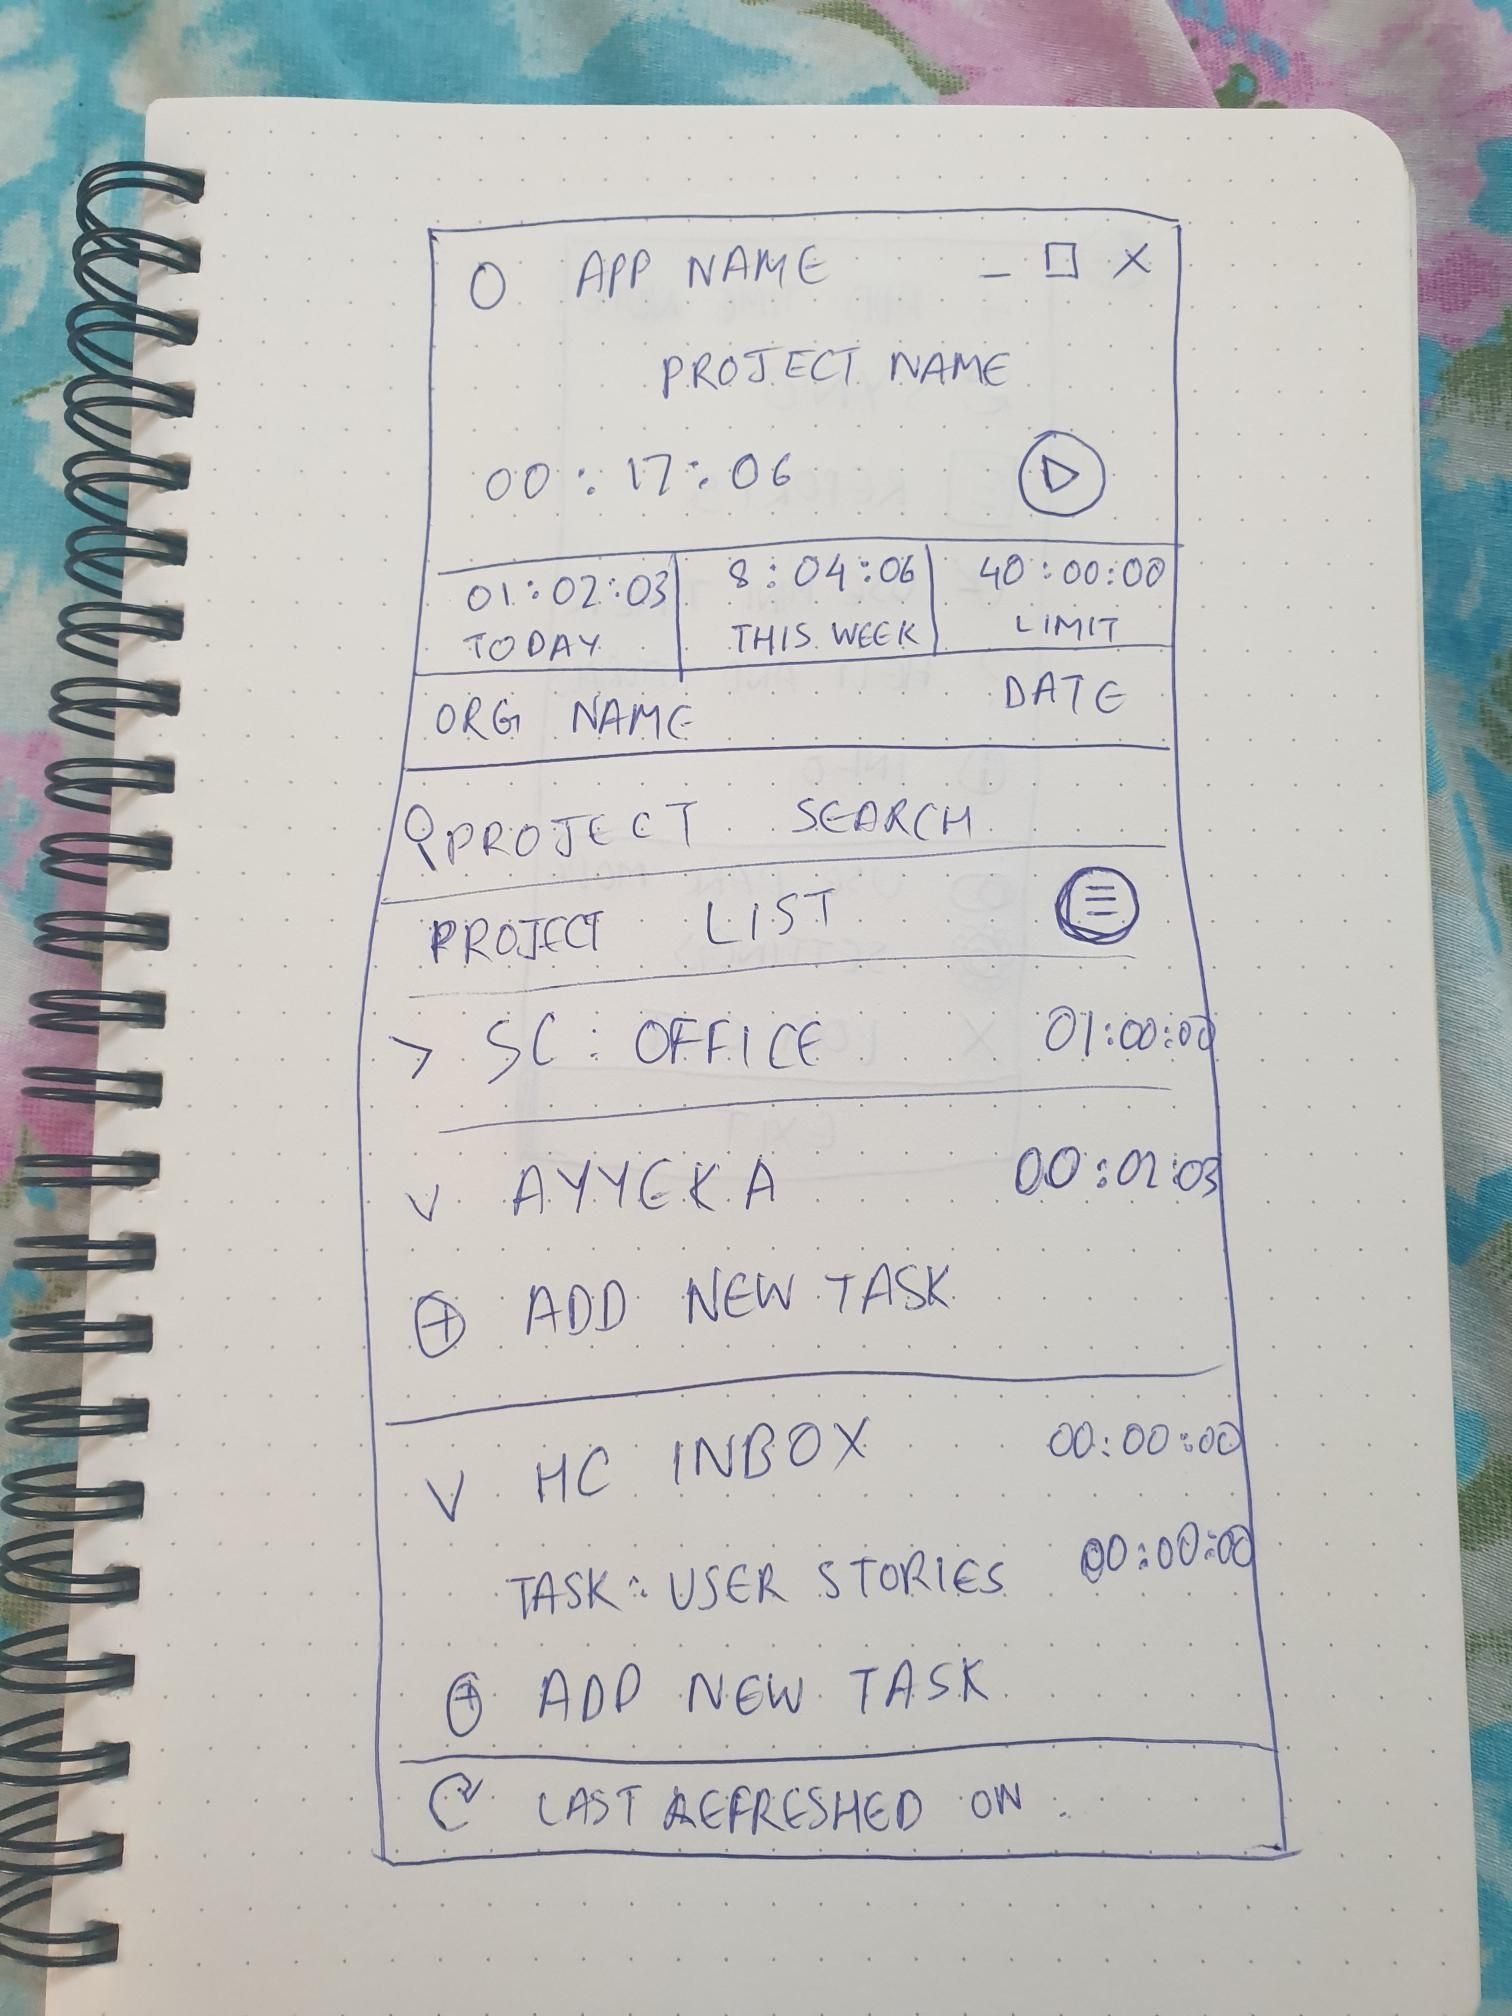 APP NAME
PROJECT NAME
00:17:06
01:02:03 8:04:06 40:00:00
TODAY THIS WEEK LIMIT
ORG NAME DATE
PROJECT SEARCH
PROJECT LIST
> SC: OFFICE 01:00:00
AYYEKA 00:02:03
ADD NEW TASK
HC INBOX 00:00:00
TASK: USER STORIES 00:00:00
ADD NEW TASK
LAST REFRESHED ON